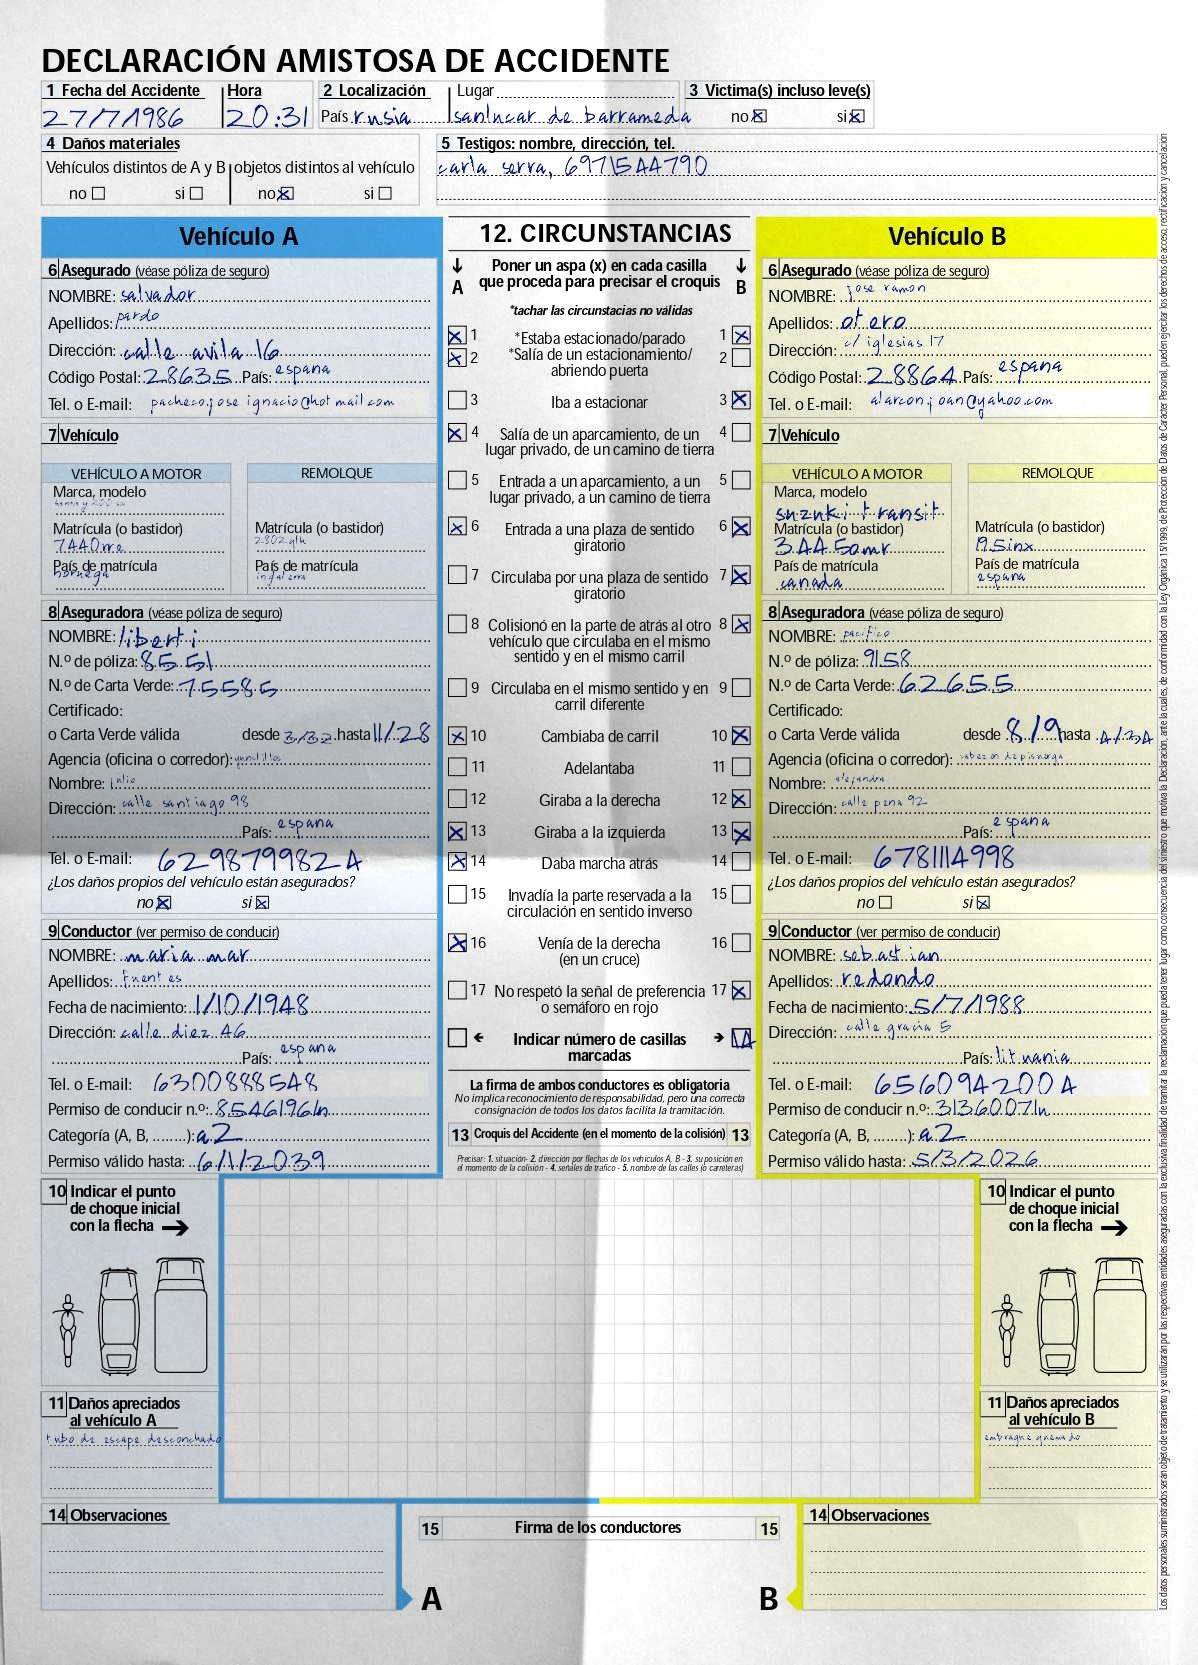 DECLARACIÓN AMISTOSA DE ACCIDENTE
1 Fecha del Accidente Hora 2 Localización Lugar 3 Victima(s) incluso leve(s)
27/7/1986 20:31 País rusia sanlucar de barrameda no si
4 Daños materiales 5 Testigos: nombre, dirección, tel.
Vehículos distintos de A y B objetos distintos al vehículo carla serra, 6971544790
no si no si
Vehículo A
6 Asegurado (véase póliza de seguro)
NOMBRE: salvador
Apellidos: pardo
Dirección: calle avila 16
Código Postal: 28635 País: espana
Tel. o E-mail: pacheco.jose ignacio@hotmail.com
7 Vehículo
VEHÍCULO A MOTOR REMOLQUE
Marca, modelo
Matrícula (o bastidor) Matrícula (o bastidor)
7440mre 2802glh
País de matrícula País de matrícula
noruega inglaterra
8 Aseguradora (véase póliza de seguro)
NOMBRE: liberti
N.º de póliza: 8551
N.º de Carta Verde: 75585
Certificado:
o Carta Verde válida desde 3/32 hasta 11/28
Agencia (oficina o corredor):
Nombre: julio
Dirección: calle santiago 98
País: espana
Tel. o E-mail: 629879982A
¿Los daños propios del vehículo están asegurados?
no si
9 Conductor (ver permiso de conducir)
NOMBRE: maria mar
Apellidos: fuentes
Fecha de nacimiento: 1/10/1948
Dirección: calle diez 46
País: espana
Tel. o E-mail: 6300888548
Permiso de conducir n.º: 8546196ln
Categoría (A, B, ........): a2
Permiso válido hasta: 6/1/2039
12. CIRCUNSTANCIAS
A Poner un aspa (x) en cada casilla que proceda para precisar el croquis B
*tachar las circunstacias no válidas
1 *Estaba estacionado/parado 1
2 *Salía de un estacionamiento/ 2
abriendo puerta
3 Iba a estacionar 3
4 Salía de un aparcamiento, de un 4
lugar privado, de un camino de tierra
5 Entrada a un aparcamiento, a un 5
lugar privado, a un camino de tierra
6 Entrada a una plaza de sentido 6
giratorio
7 Circulaba por una plaza de sentido 7
giratorio
8 Colisionó en la parte de atrás al otro 8
vehículo que circulaba en el mismo
sentido y en el mismo carril
9 Circulaba en el mismo sentido y en 9
carril diferente
10 Cambiaba de carril 10
11 Adelantaba 11
12 Giraba a la derecha 12
13 Giraba a la izquierda 13
14 Daba marcha atrás 14
15 Invadía la parte reservada a la 15
circulación en sentido inverso
16 Venía de la derecha 16
(en un cruce)
17 No respetó la señal de preferencia 17
o semáforo en rojo
Indicar número de casillas 14
marcadas
La firma de ambos conductores es obligatoria
No implica reconocimiento de responsabilidad, pero una correcta
consignación de todos los datos facilita la tramitación.
13 Croquis del Accidente (en el momento de la colisión) 13
Precisar: 1. situación- 2. dirección por flechas de los vehículos A, B - 3. su posición en
el momento de la colisión - 4. señales de tráfico - 5. nombre de las calles (o carreteras)
Vehículo B
6 Asegurado (véase póliza de seguro)
NOMBRE: jose ramon
Apellidos: otero
Dirección: c/ iglesias 17
Código Postal: 28864 País: espana
Tel. o E-mail: alarcon.joan@yahoo.com
7 Vehículo
VEHÍCULO A MOTOR REMOLQUE
Marca, modelo
suzuki transit
Matrícula (o bastidor) Matrícula (o bastidor)
3445omr 195inx
País de matrícula País de matrícula
canada espana
8 Aseguradora (véase póliza de seguro)
NOMBRE: pacifico
N.º de póliza: 9158
N.º de Carta Verde: 62655
Certificado:
o Carta Verde válida desde 8/9 hasta 4/34
Agencia (oficina o corredor): cabezon de pisuerga
Nombre: alejandra
Dirección: calle pena 92
País: espana
Tel. o E-mail: 6781114998
¿Los daños propios del vehículo están asegurados?
no si
9 Conductor (ver permiso de conducir)
NOMBRE: sebastian
Apellidos: redondo
Fecha de nacimiento: 5/7/1988
Dirección: calle gracia 5
País: lituania
Tel. o E-mail: 656094200A
Permiso de conducir n.º: 3136007ln
Categoría (A, B, ........): a2
Permiso válido hasta: 5/3/2026
10 Indicar el punto
de choque inicial
con la flecha
10 Indicar el punto
de choque inicial
con la flecha
11 Daños apreciados
al vehículo A
tubo de escape desconchado
11 Daños apreciados
al vehículo B
embrague quemado
14 Observaciones
15 Firma de los conductores 15
A B
14 Observaciones
Los datos personales suministrados serán objeto de tratamiento y se utilizarán por las respectivas entidades aseguradas con la exclusiva finalidad de tramitar la reclamación que pueda tener lugar como consecuencia del siniestro que motiva la Declaración, ante la cuales, de conformidad con la Ley Orgánica 15/1999, de Protección de Datos de Carácter Personal, pueden ejercitar los derechos de acceso, rectificación y cancelación